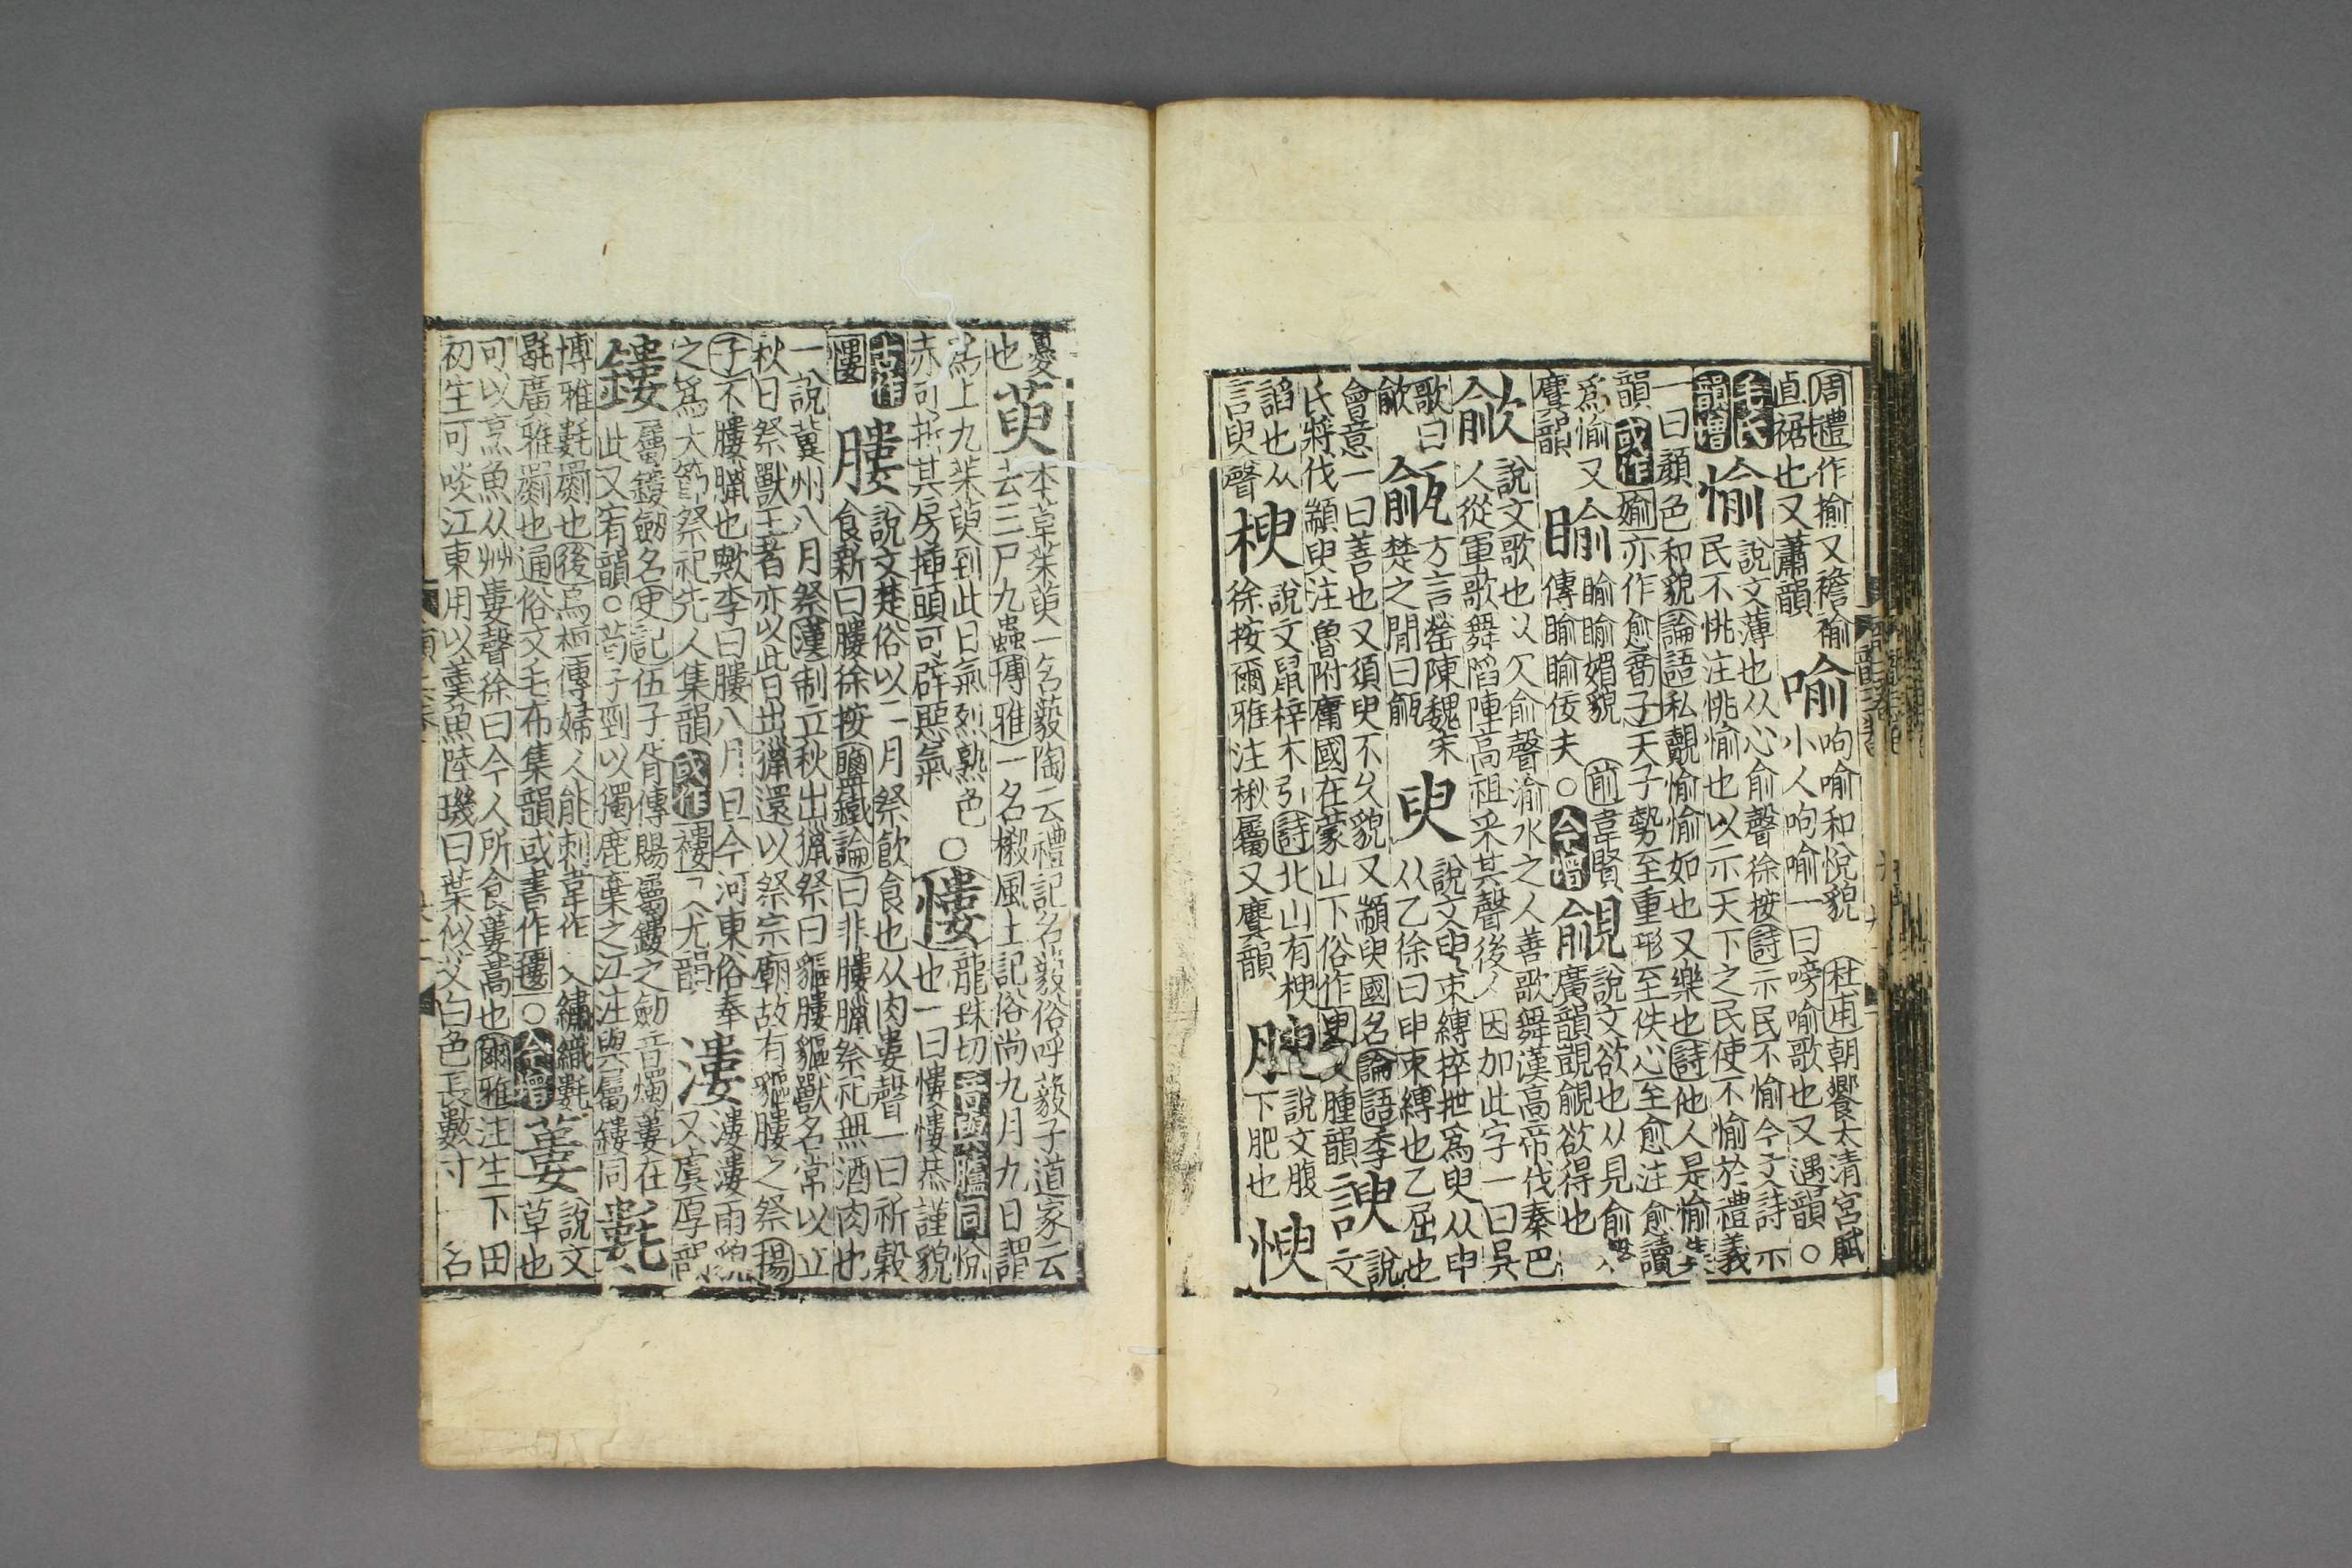 周禮作揄又襜褕喻呴喻和悅貌杜甫朝饗太清宮賦
直裾也又蕭韻小人呴喻一曰嗙喻歌也又遇韻○
毛氏韻增愉說文薄也从心俞聲徐按詩示民不愉今文詩不
民不恌注恌愉也以示天下之民使不愉於禮義
一曰顏色和貌論語私覿愉愉如也又樂也詩他人是愉
韻或作媮亦作愈荀子天子勢至重形至佚心至愈注愈讀
爲愉又瞼瞼媚貌前韋賢
麌韻傳瞼瞼侫夫○今增覦說文欲也从見俞
廣韻覬覦欲得也
歈說文歌也以欠俞聲渝水之人善歌舞漢高帝伐秦巴
人從軍歌舞䧟陣高祖采其聲後人因加此字一曰吳
歌曰歈㼶方言罃陳魏宋楚之閒曰㼶臾說文臾束縛捽抴爲臾从申
从乙徐曰申束縛也乙屈也
會意一曰善也又須臾不久貌又顓臾國名論語季
氏將伐顓臾注魯附庸國在蒙山下俗作叟又腫韻諛說文
諂也从言臾聲楰說文鼠梓木引詩北山有楰腴說文腹
徐按爾雅注楸屬又麌韻下肥也㥚
憂也萸本草茱萸一名藙陶云禮記名藙俗呼藙子道家云
去三尸九蟲博雅一名樧風土記俗尚九月九日謂
爲上九茱萸到此日氣烈熟色○慺龍珠切悅
赤可折其房揷頭可辟惡氣也一曰慺慺恭謹貌
古作㥪膢說文楚俗以二月祭飲食也从肉婁聲一曰祈穀
食新曰膢徐按鹽鐵論曰非膢臘祭祀無酒肉也
一說冀州八月祭漢制立秋出獵祭曰貙膢貙獸名常以立
秋日祭獸王者亦以此日出獵還以祭宗廟故有貙膢之祭揚
子不膢臘也歟李曰膢八月旦今河東俗奉漊漊漊雨貌
之爲大節祭祀先人集韻或作䄛又尤韻又虞厚韻
鏤屬鏤劔名史記伍子胥傳賜屬鏤之劔音燭蔞在
此又宥韻○荀子剄以獨鹿棄之江注與屬鏤同氀說文
博雅氀罽也後烏桓傳婦人能刺韋作入繡織氀
毼廣雅罽也通俗文毛布集韻或書作㲣○今增蔞草也
可以烹魚从艸婁聲徐曰今人所食蔞蒿也爾雅注生下田
初生可啖江東用以羹魚陸璣曰葉似艾白色長數寸名